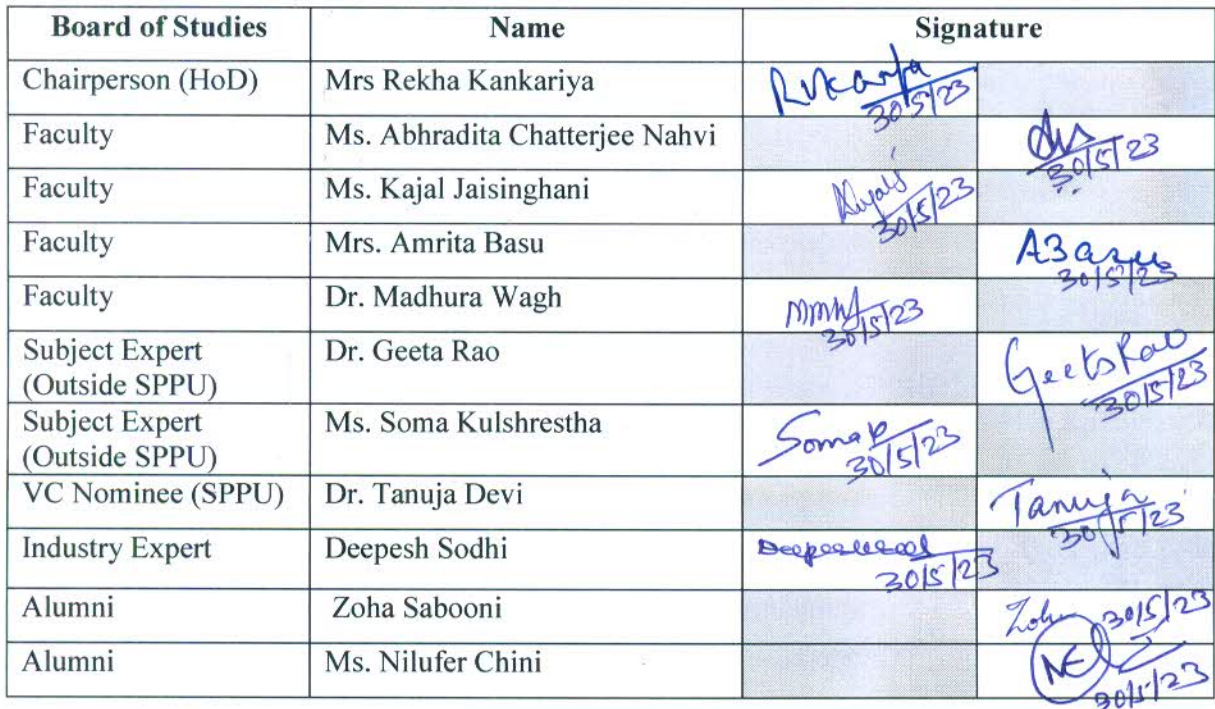 Board of Studies Name Signature
Chairperson (HoD) Mrs Rekha Kankariya
30/5/23
Faculty Ms. Abhradita Chatterjee Nahvi
30/5/23
Faculty Ms. Kajal Jaisinghani
30/5/23
Faculty Mrs. Amrita Basu ABasu
30/5/23
Faculty Dr. Madhura Wagh
30/5/23
Subject Expert Dr. Geeta Rao Geeta Rao
(Outside SPPU) 30/5/23
Subject Expert Ms. Soma Kulshrestha Soma K
(Outside SPPU) 30/5/23
VC Nominee (SPPU) Dr. Tanuja Devi Tanuja
30/5/23
Industry Expert Deepesh Sodhi
30/5/23
Alumni Zoha Sabooni Zoha 30/5/23
Alumni Ms. Nilufer Chini
30/5/23